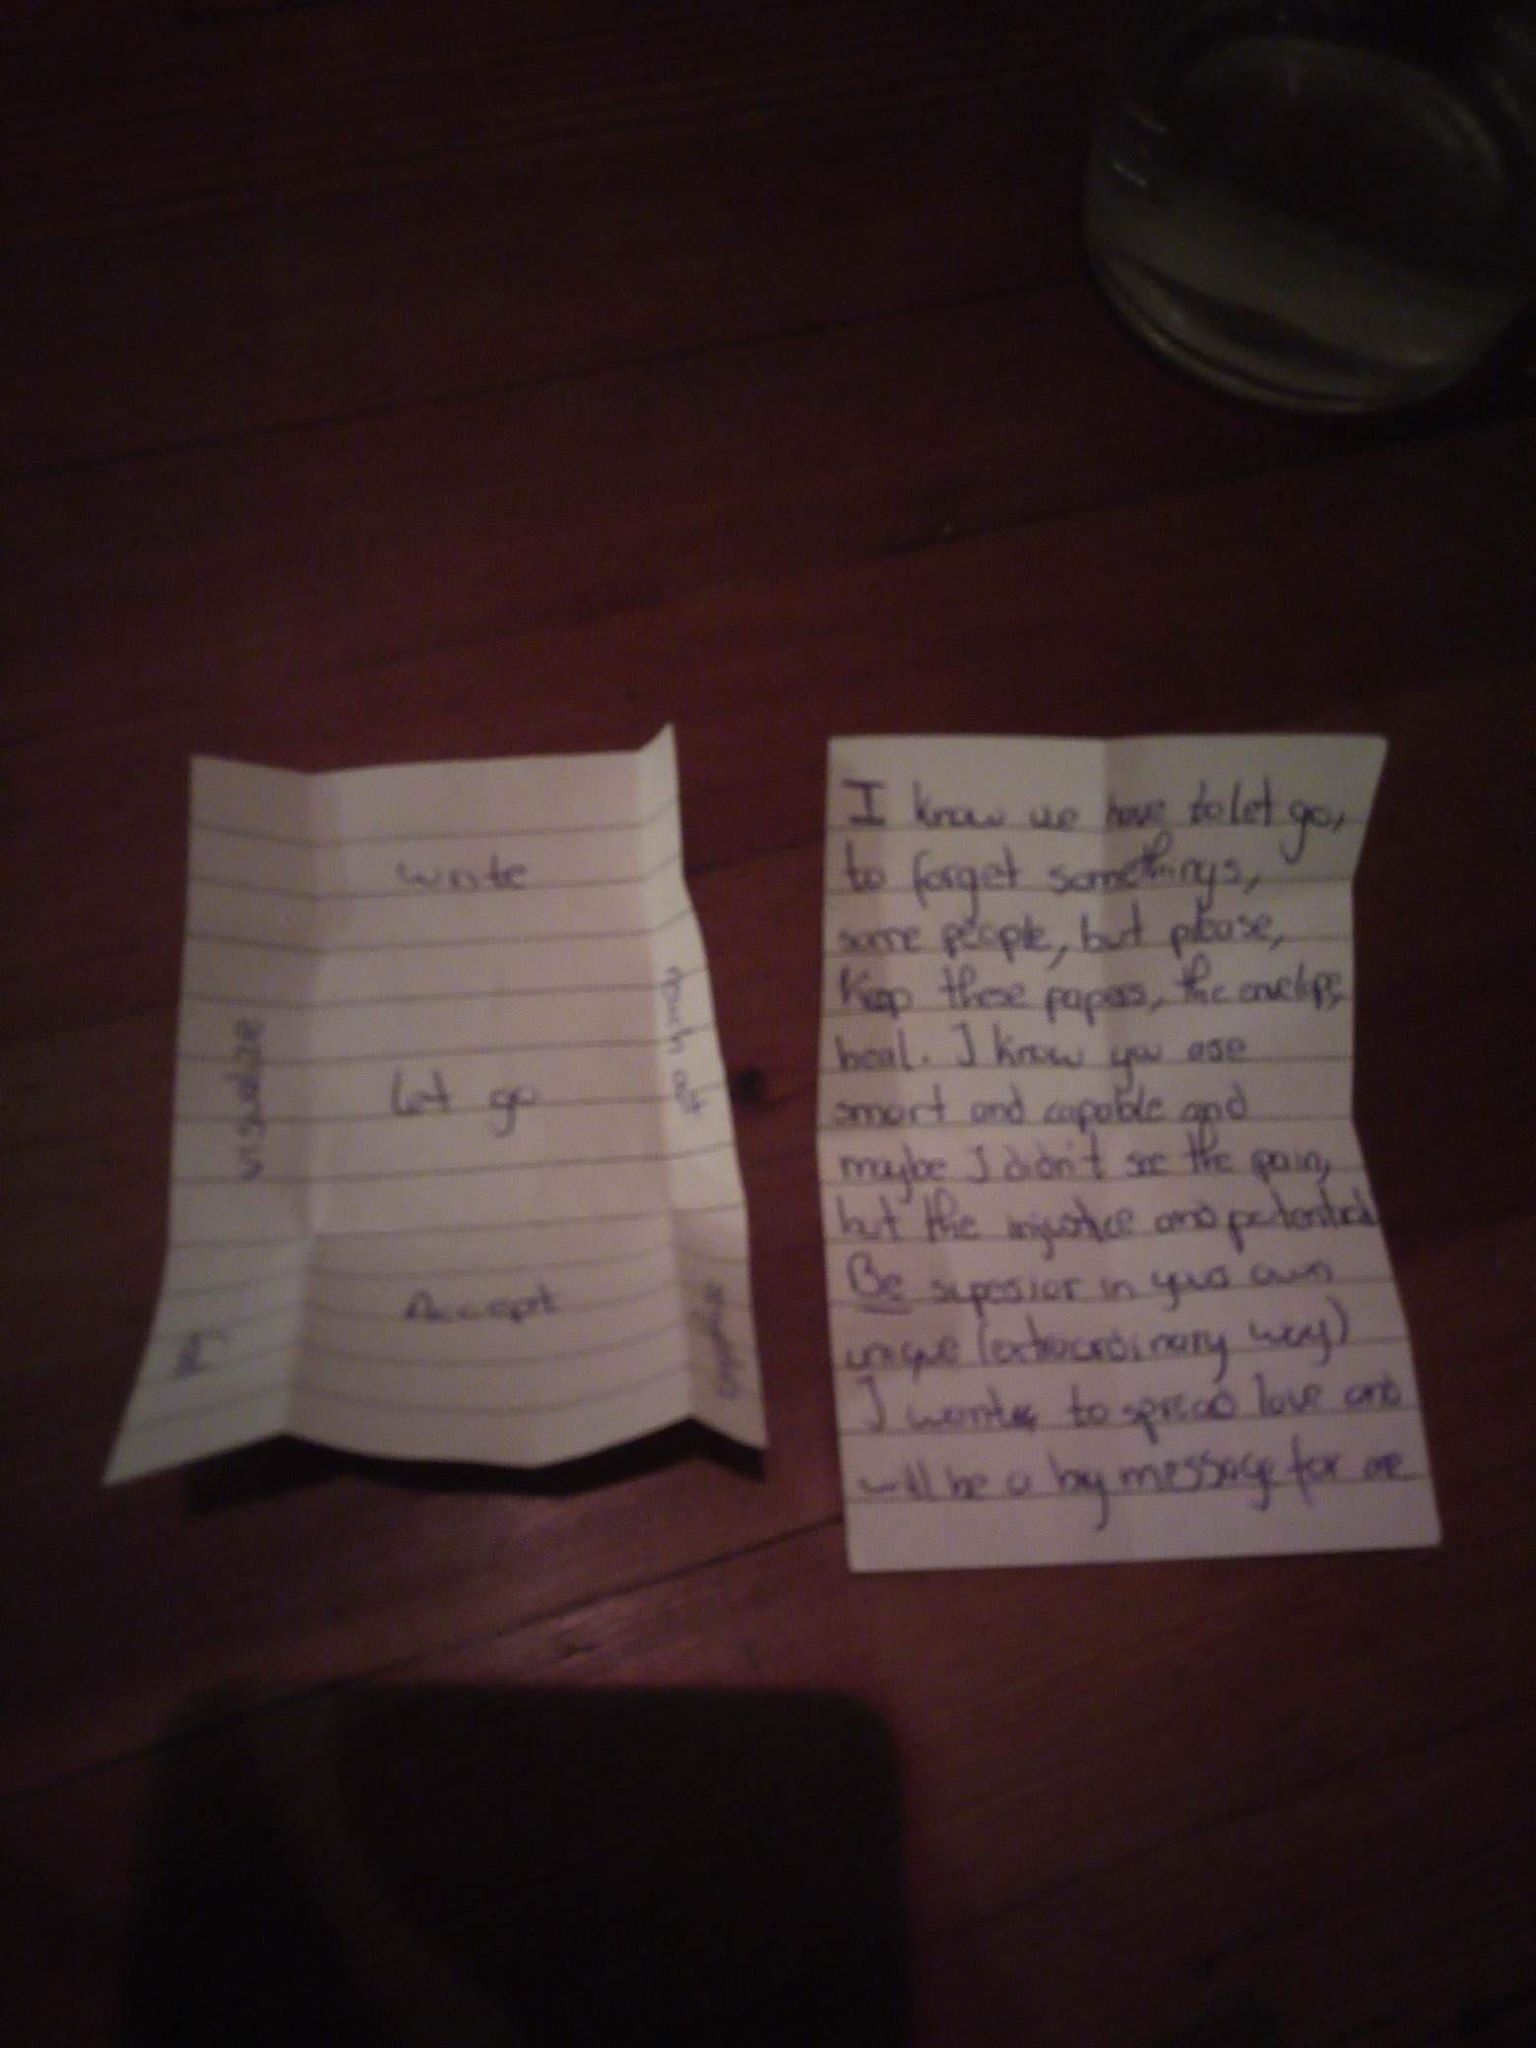 write
visualize
let go
Accept
I know we have to let go,
to forget somethings,
some people, but please,
Keep these papers, the envelope,
heal. I know you are
smart and capable and
maybe I didn't see the pain,
but the injustice and potential
Be superior in your own
unique (extraordinary way)
I want to spread love and
will be a big message for me